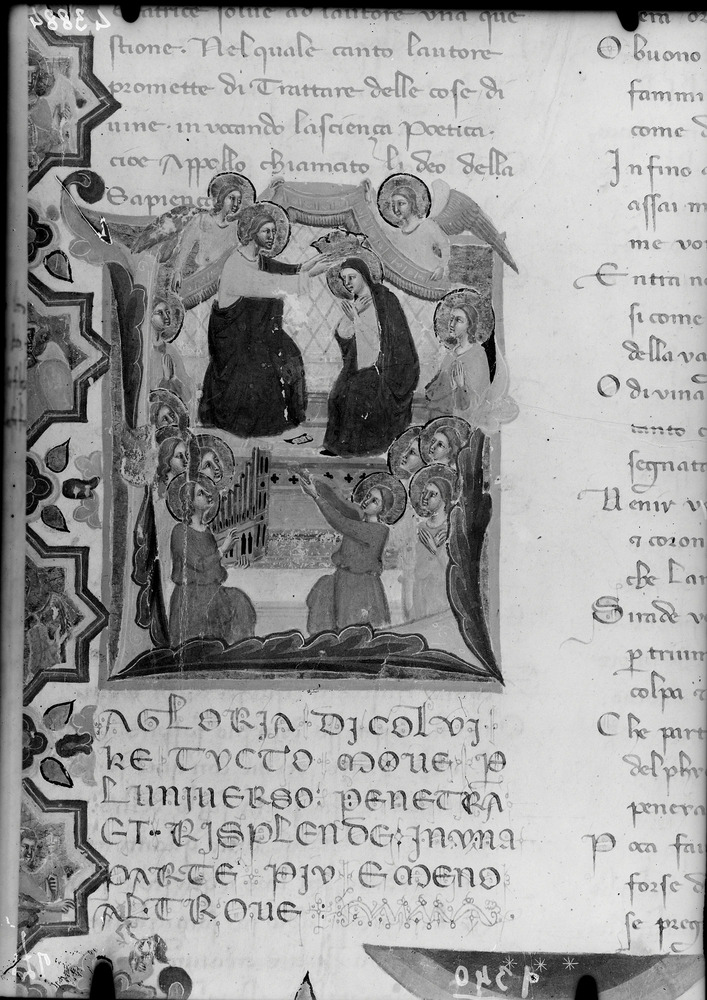 beatrice solue ad lautore una que
stione. Nel quale canto lautore
promette di Trattare delle cose di
uine. in uocando lasciença Poetica.
cioe Appollo chiamato li deo della
Sapiença
AGLORIA DICOLVI
KE TVCTO MOVE. P
LUNIUERSO: PENETRA
ET. RISPLENDE: IN VNA
PARTE PIV E MENO
ALTROUE
O buono
fammi
come d
Infino a
assai m
me vo
Entra ne
si come
della va
O diuina
tanto
segnat
Uenir v
⁊ coron
che
Si rade v
p trium
colpa
Che part
del phy
penera
Poca fa
forse d
se preg
43884
9340